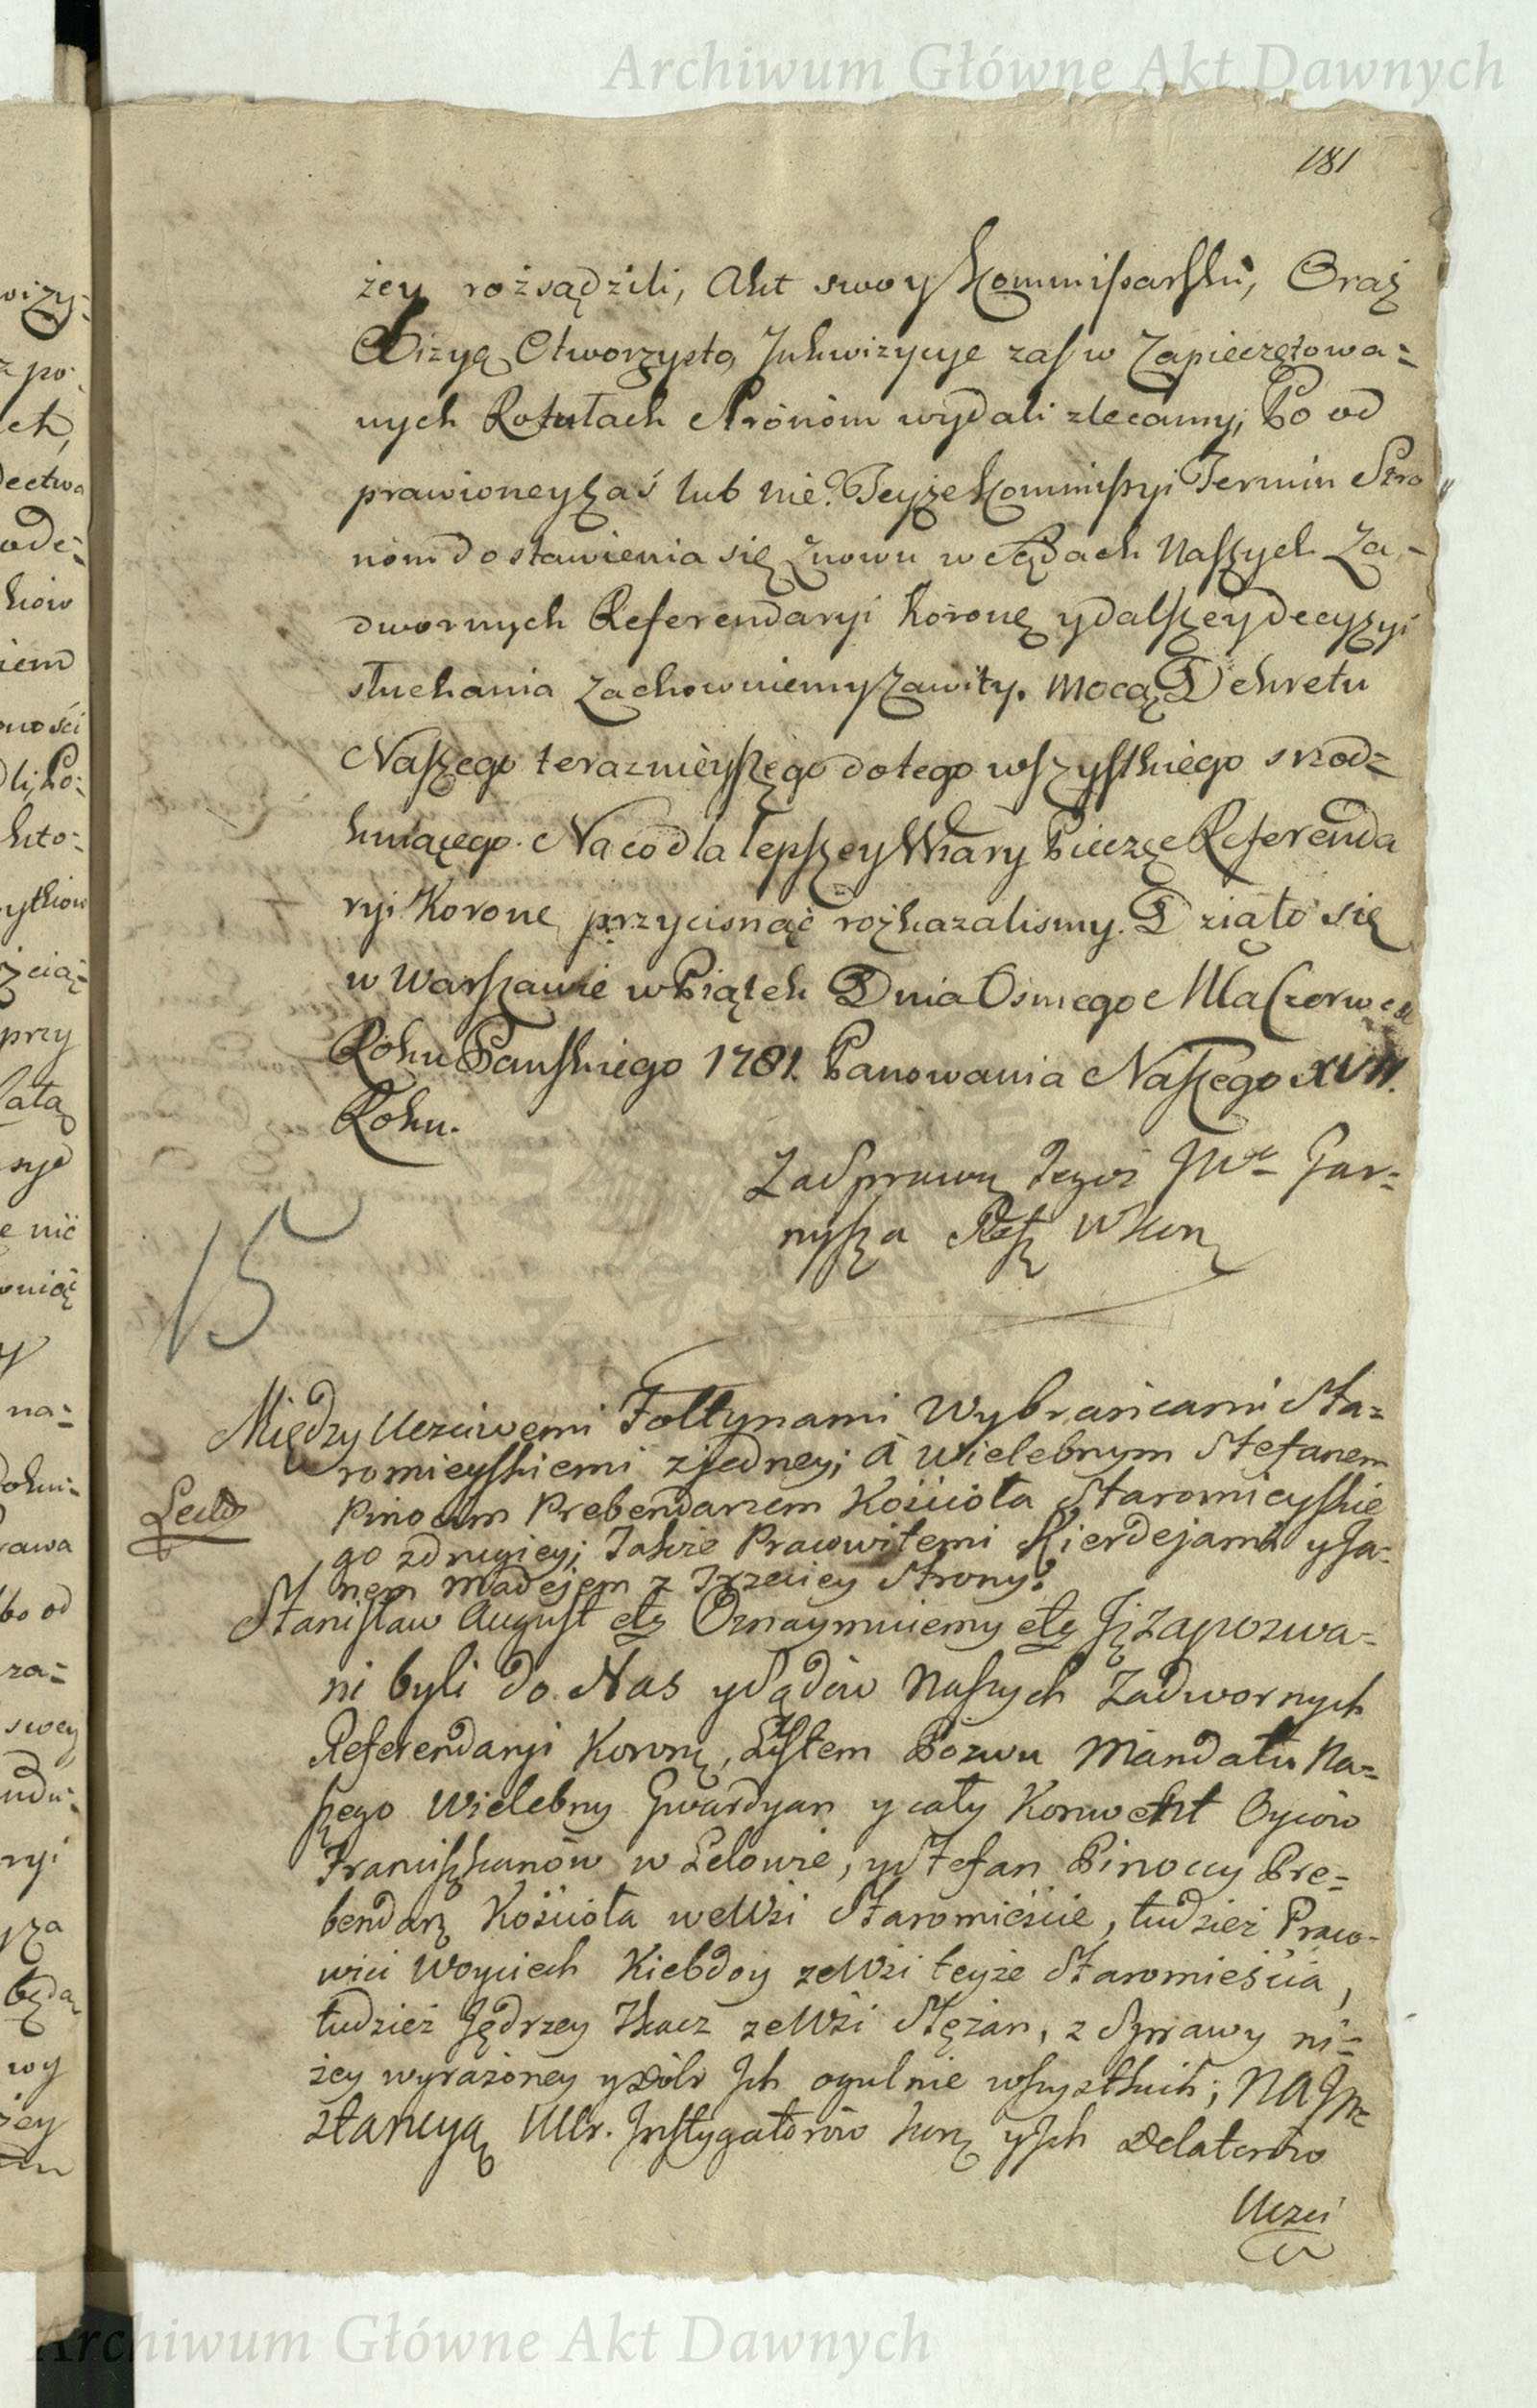 Archiwum Główne Akt Dawnych
181
żey rożsądzili, Akt swoy Kommissarski, Oraz
Wizyą Otworzysto, Inkwizycye zaś w Zapieczętowa=
nych Rotułach Stronóm wydali zlecamy, Po od
prawioney zaś lub nie Teyże Kommissyi Termin Stro
nóm do stawienia się znowu w Sądach Naszych Za=
dwornych Referendaryi Koronę y dalszey decyzyi
słuchania zachowuiemy zawity. Mocą Dekretu
Naszego teraznieyszego do tego wszystkiego srzod=
kuiącego. Na co dla lepszey Wiary Pieczęc Referenda
ryi Korone przycisnąć rozkazalismy. Działo się
w Warszawie w Piątek Dnia Osmego Mca Czerwca
Roku Panskiego 1781. Panowania Naszego XVII.
Roku.
Za Sprawą Jegoż JWo Gar=
nysza Refz WKorz
15
Między Uczciwemi Foltynami Wybrańcami Sta=
romieyskiemi zjedney; A Wielebnym Stefanem
Pinocim Prebendarzem Kościoła Staromieyskie
go zdrugiey; Także Prawowitemi Kierdejami y Ja=
nem Madejem z Trzeciey Strony.
Stanisław August etc Oznaymuiemy etc Iż zapozwa=
ni byli do Nas y Sądów Naszych Zadwornych
Referendaryi Korony, Listem Pozwu Mandatu Na=
szego Wielebny Gwardyan y cały Konwent Oyców
Franciszkanów w Lelowie, y Stefan Pinoccy Pre=
bendarz Kościoła we Wsi Staromieście, tudzież Praco=
wici Woyciech Kiebdoy ze Wsi teyże Staromieścia,
tudzież Jędrzey Tkacz ze Wsi Stężan, z Sprawy ni=
żey wyrażoney y Dóbr Ich ogulnie wszystkich; NA In=
stancyą Ur. Instygatorów Korz y Ich Delatorów
Uczci
Archiwum Główne Akt Dawnych